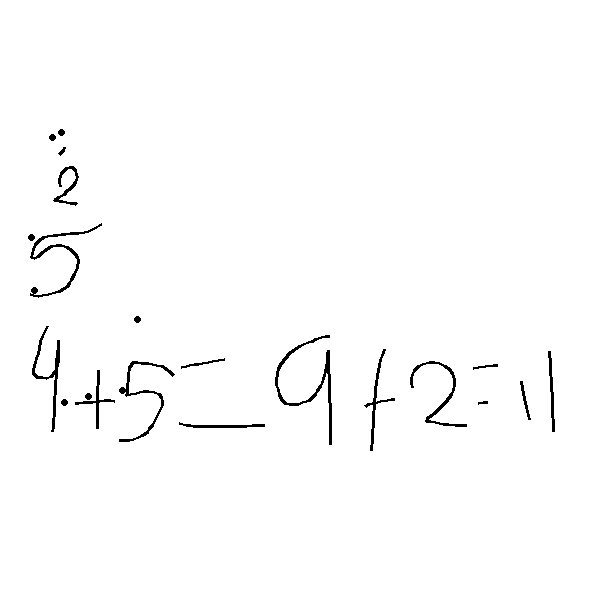 2
5
4+5=9+2=11